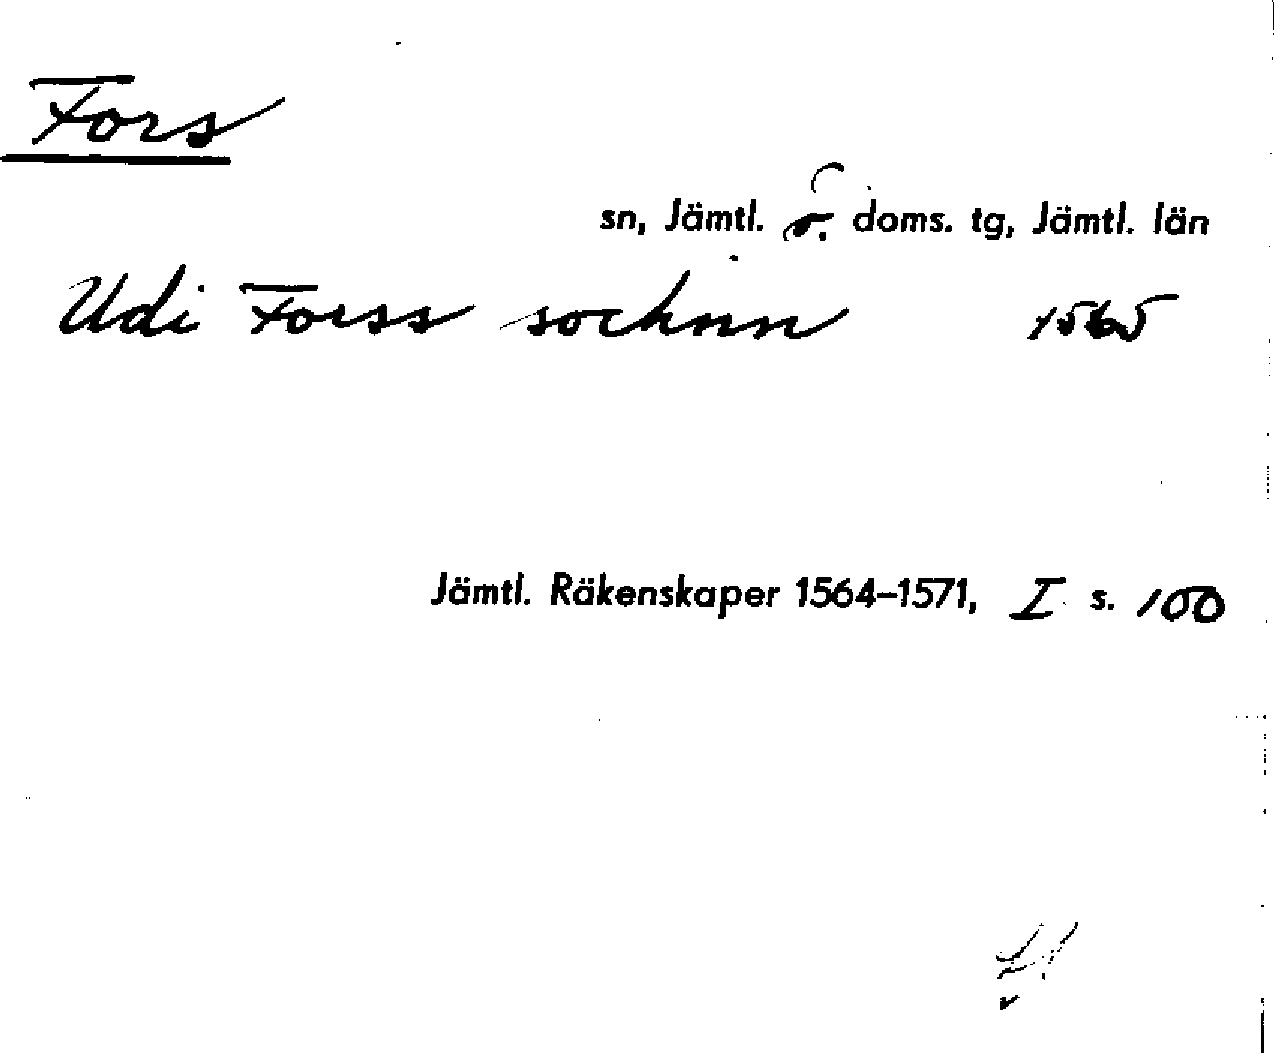 Fors
sn, Jämtl. ö. doms. tg, Jämtl. län
Udi Forss sochnn 1565
Jämtl. Räkenskaper 1564–1571, I s. 100